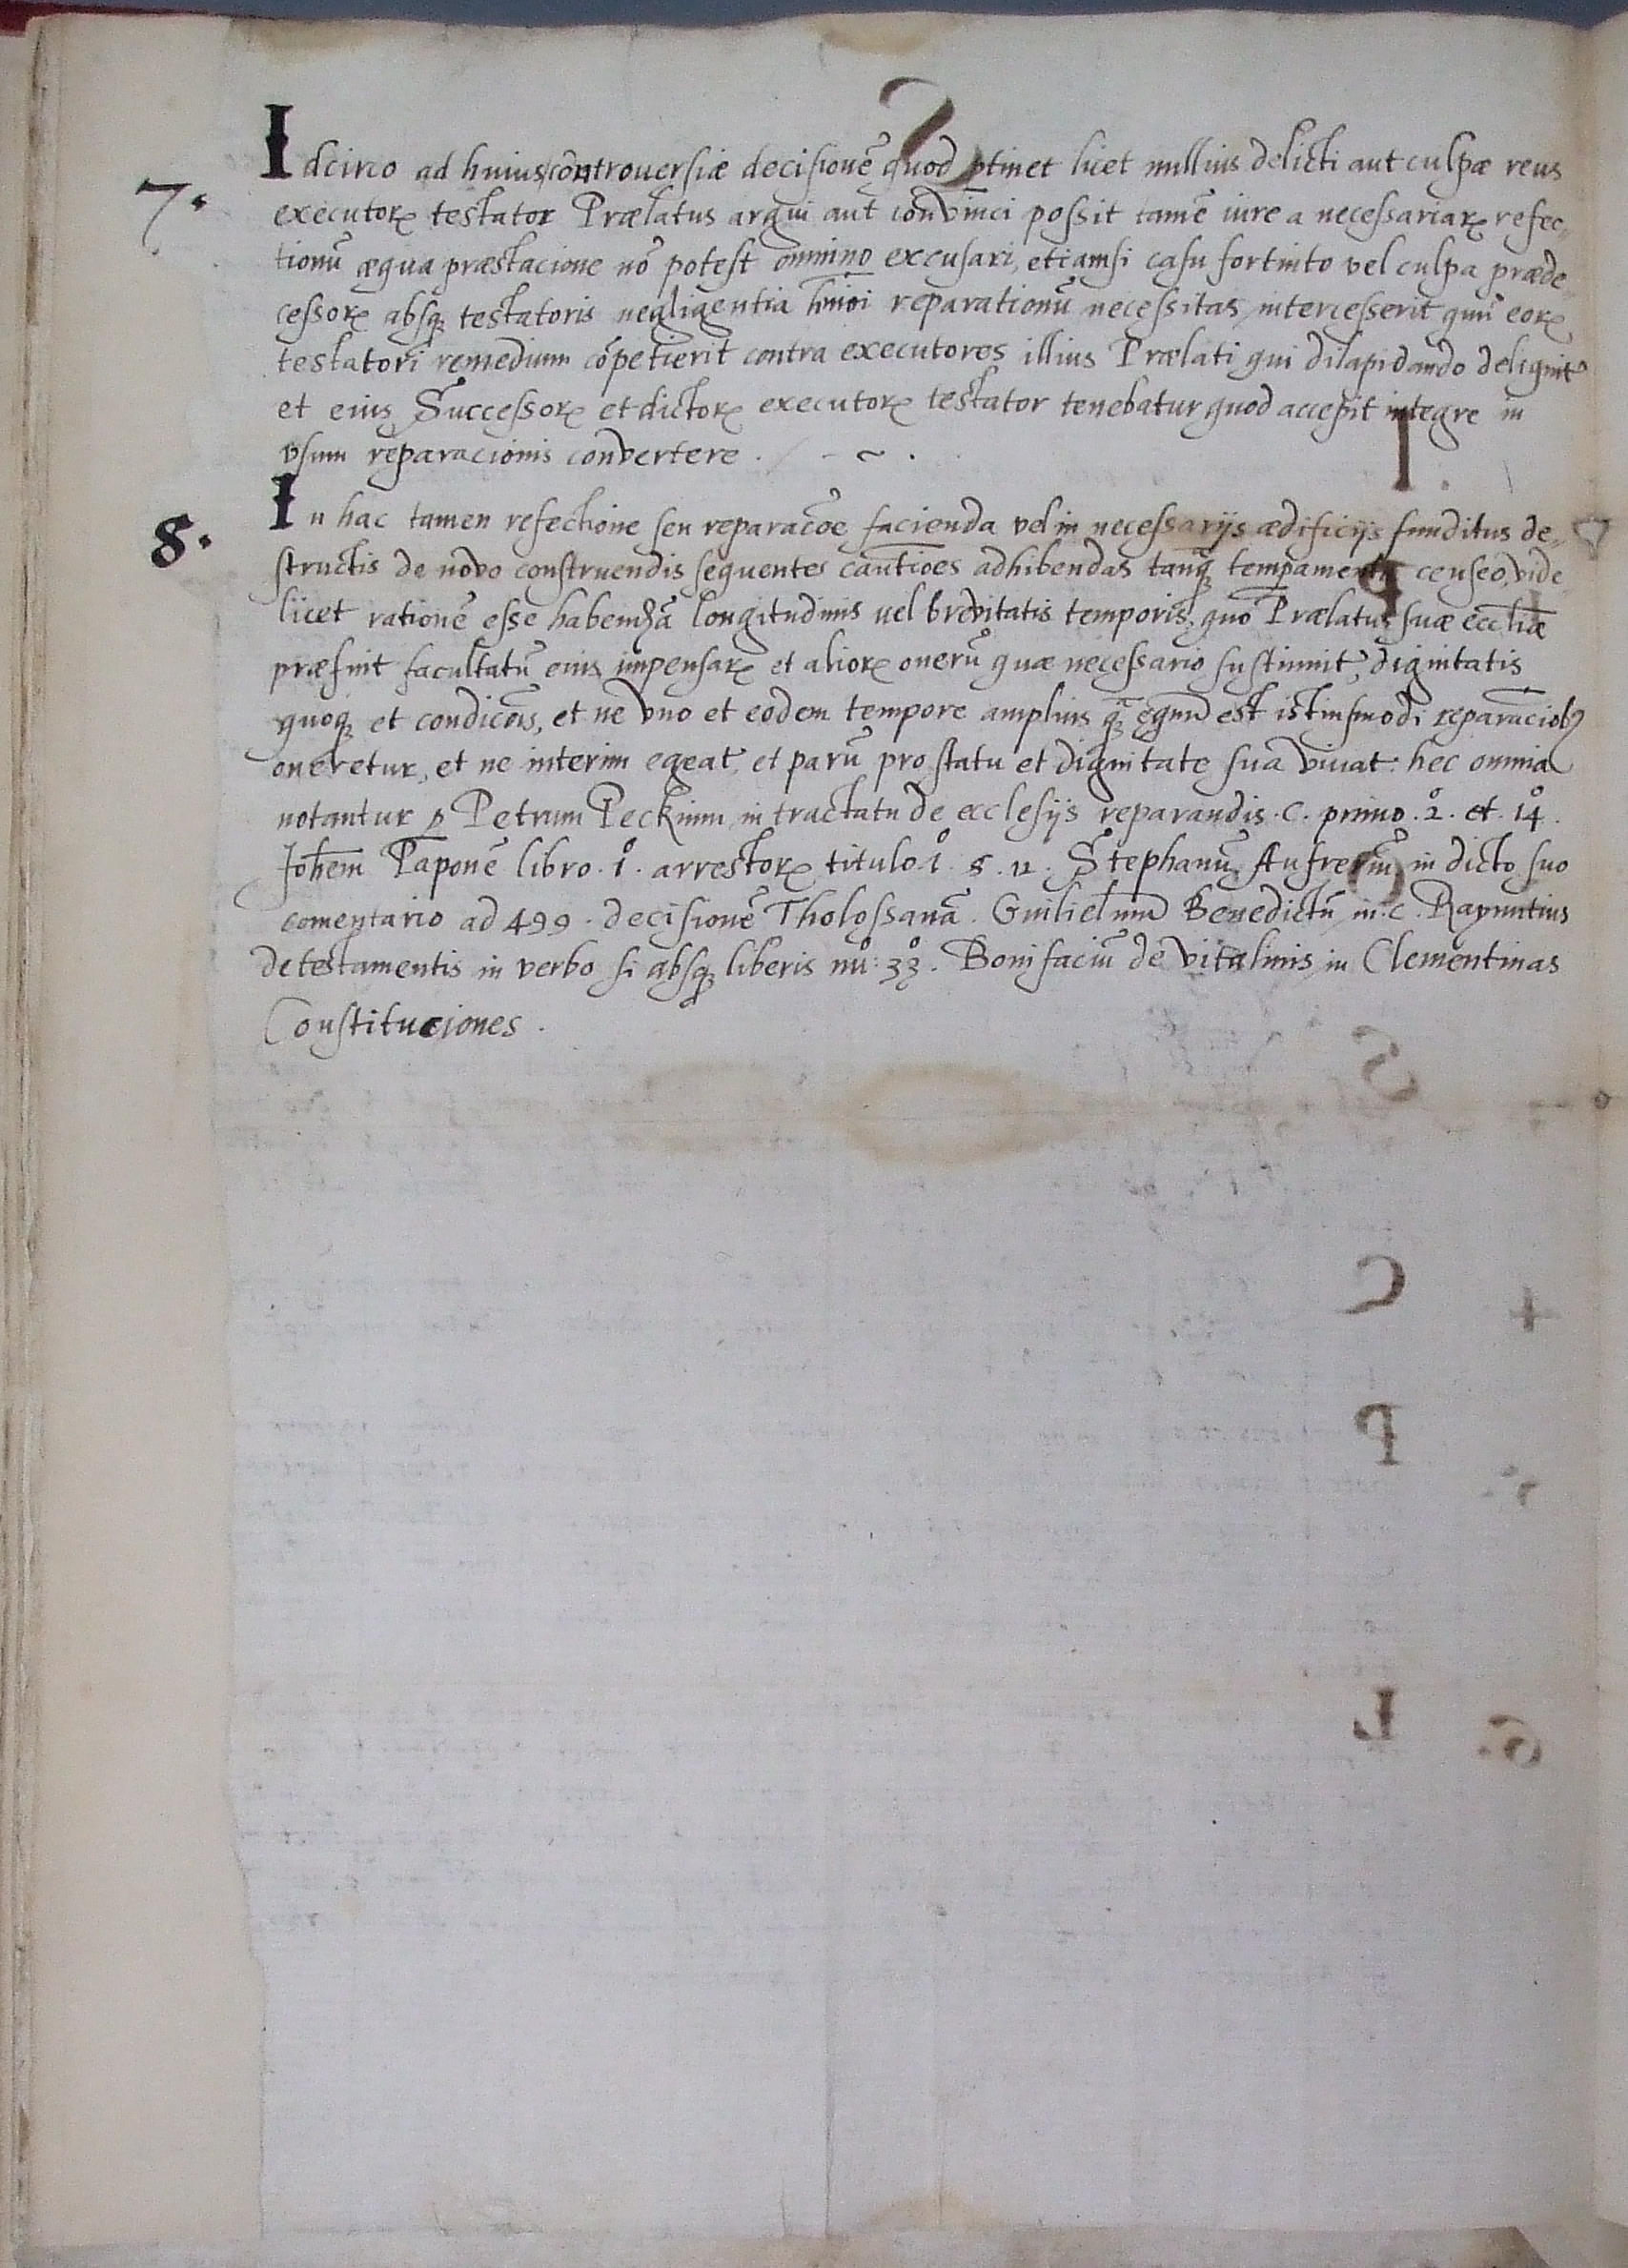 7. Idcirco ad huius controuersiæ decisionē quod ꝑtinet licet nullius delicti aut culpæ reus
executoꝝ testator Prælatus argui aut convinci possit tamē iure a necessariaꝝ refec-
tionū æqua præstacione nō potest omnino excusari, etiamsi casu fortuito vel culpa præde-
cessoꝝ absqꝫ testatoris negligentia hmōi reparationū necessitas intercesserit quū eoꝝ
testatori remedium cōpetierit contra executores illius Prælati qui dilapidando deliquit
et eius Successoꝝ et dictoꝝ executoꝝ testator tenebatur quod accepit integre in
vsum reparacionis convertere . ~ .
8. In hac tamen refectione seu reparacōe facienda vel in necessarijs ædificijs funditus de-
structis de novo construendis sequentes cautiōes adhibendas tanqꝫ temꝑamenta censeo, vide
licet rationē esse habendā longitudinis vel brevitatis temporis, quo Prælatus suæ eccliæ
præfuit facultatū eius impensaꝝ et alioꝝ onerū quæ necessario sustinuit, dignitatis
quoqꝫ et condicōis, et ne vno et eodem tempore amplius qꝫ̄ equū est istiusmodi reparaciōibꝫ
oneretur, et ne interim egeat, et parū pro statu et dignitate sua viuat: hec omnia
notantur ꝑ Petrum Peckium in tractatu de ecclesijs reparandis . c . primo . 2̊ . et . 14̊ .
Johēm Paponē libro . 1̊ . arrestoꝝ titulo . 1̊ . 8 . 12 . Stephanū Aufreriū in dicto suo
comentario ad 499 . decisionē Tholossanā . Guilielmū Benedictū in . c . Raynutius
de testamentis in verbo si absqꝫ liberis nū̊: 33̊ . Bonifaciū de vitalinis in Clementinas
Constituciones .